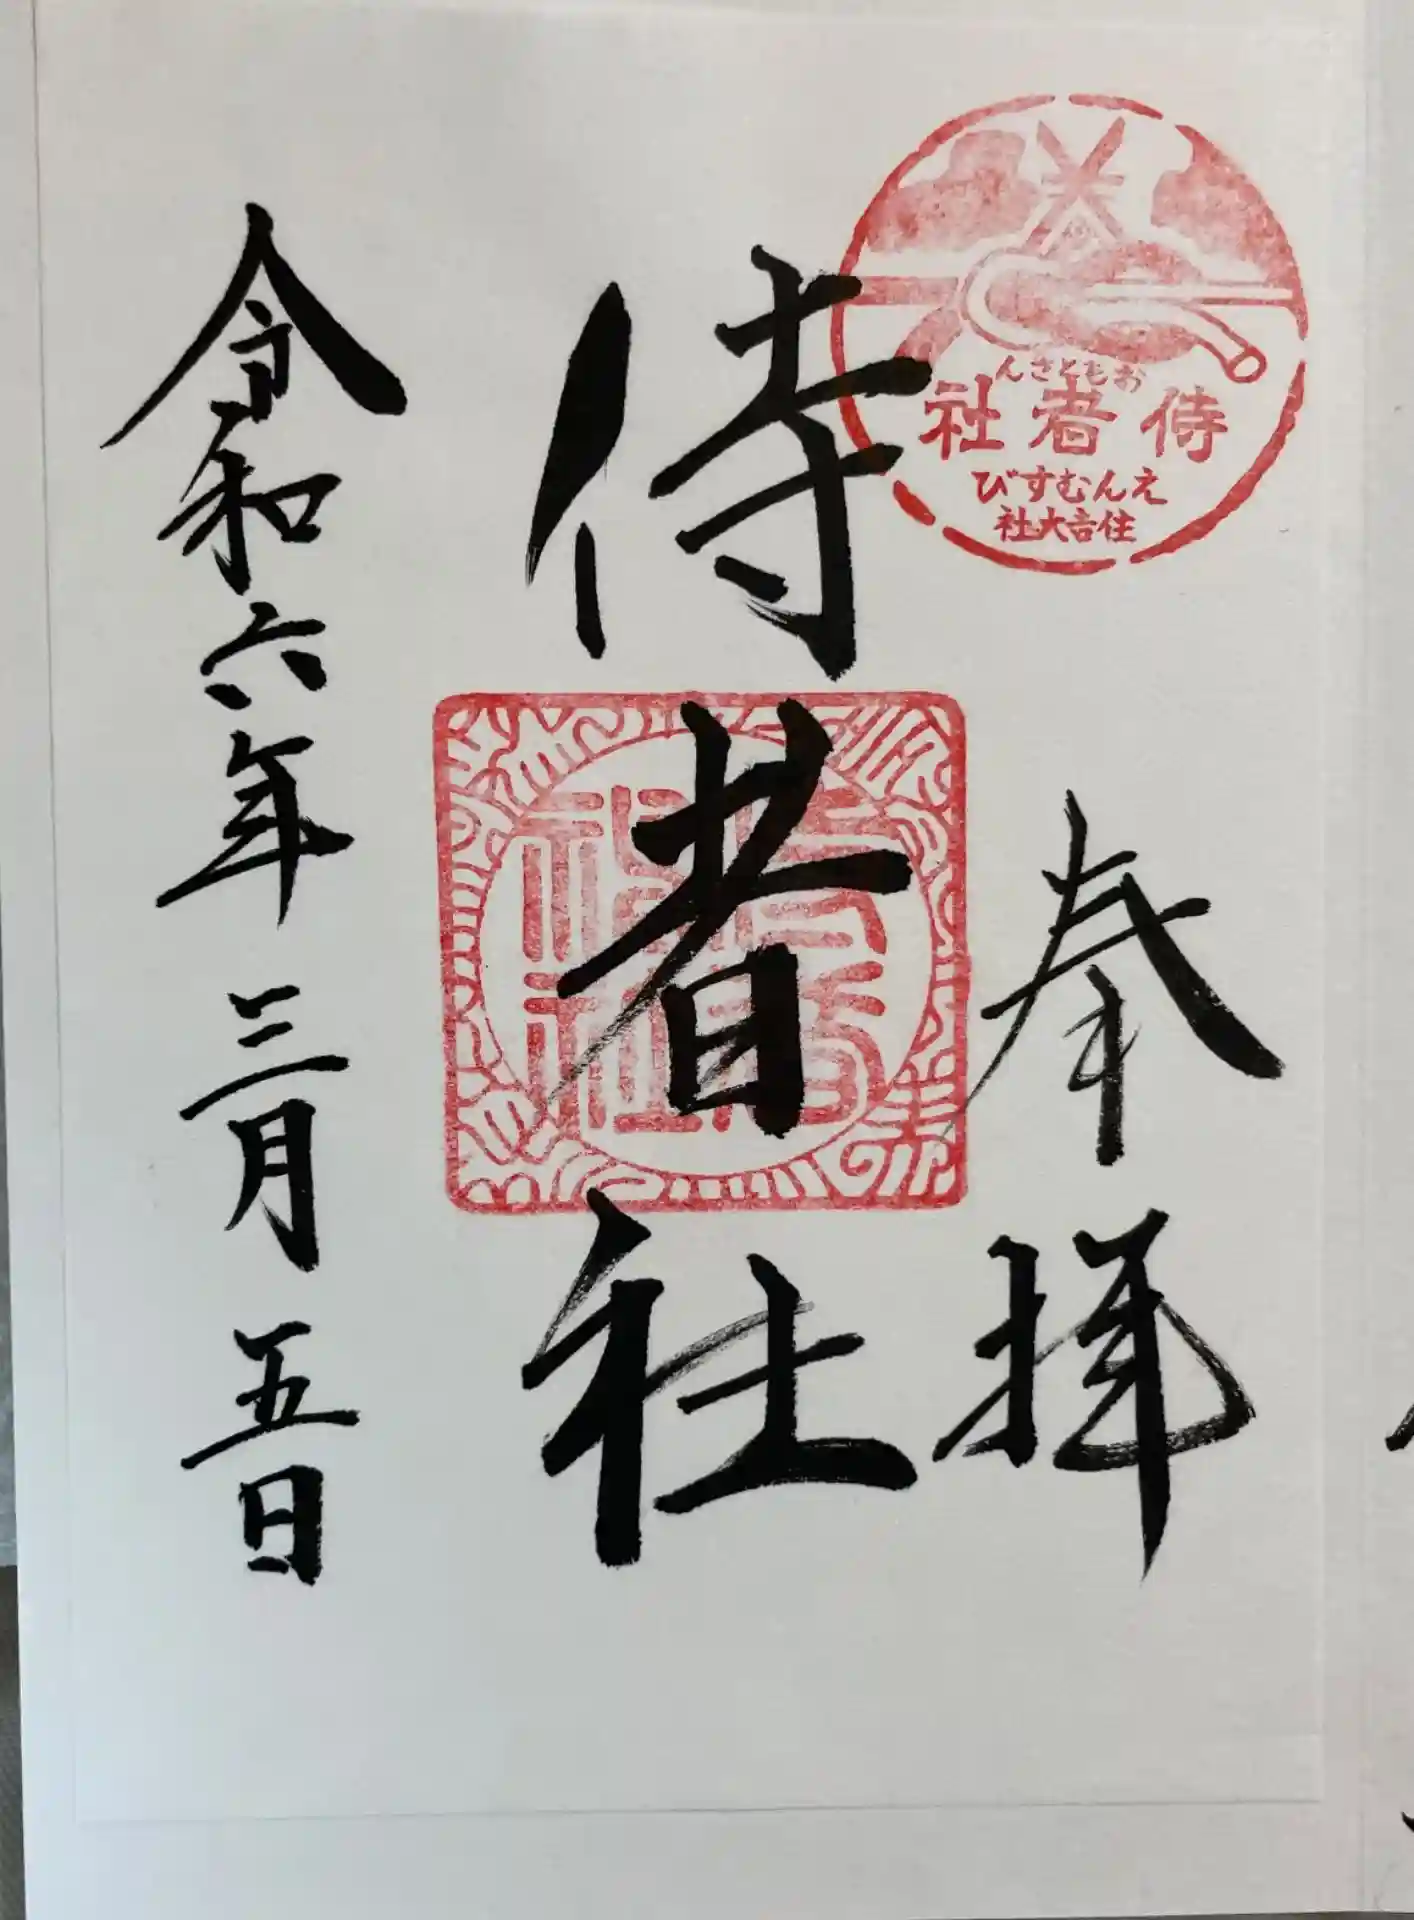 奉拝
おもとさん
侍者社
えんむすび
住吉大社
侍者社
令和六年三月五日